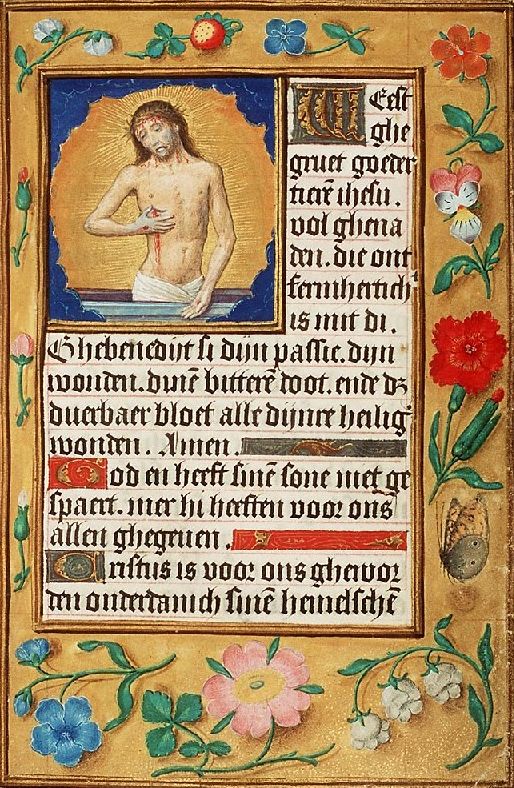 Weest
ghe
gruet goeder
tierē ihesu.
vol ghena
den. die ont
fermhertich
is mit di.
Ghebenedijt si dijn passie. dijn
wonden. dinē bitterē doot. ende dʒ
duerbaer bloet alle dijnre heiligʾ
wonden. Amen.
God en heeft sinē sone niet ge
spaert. mer hi heeften voor ons
allen ghegeuen.
Cristus is voor ons ghewor
den onderdanich sinē hemelschē